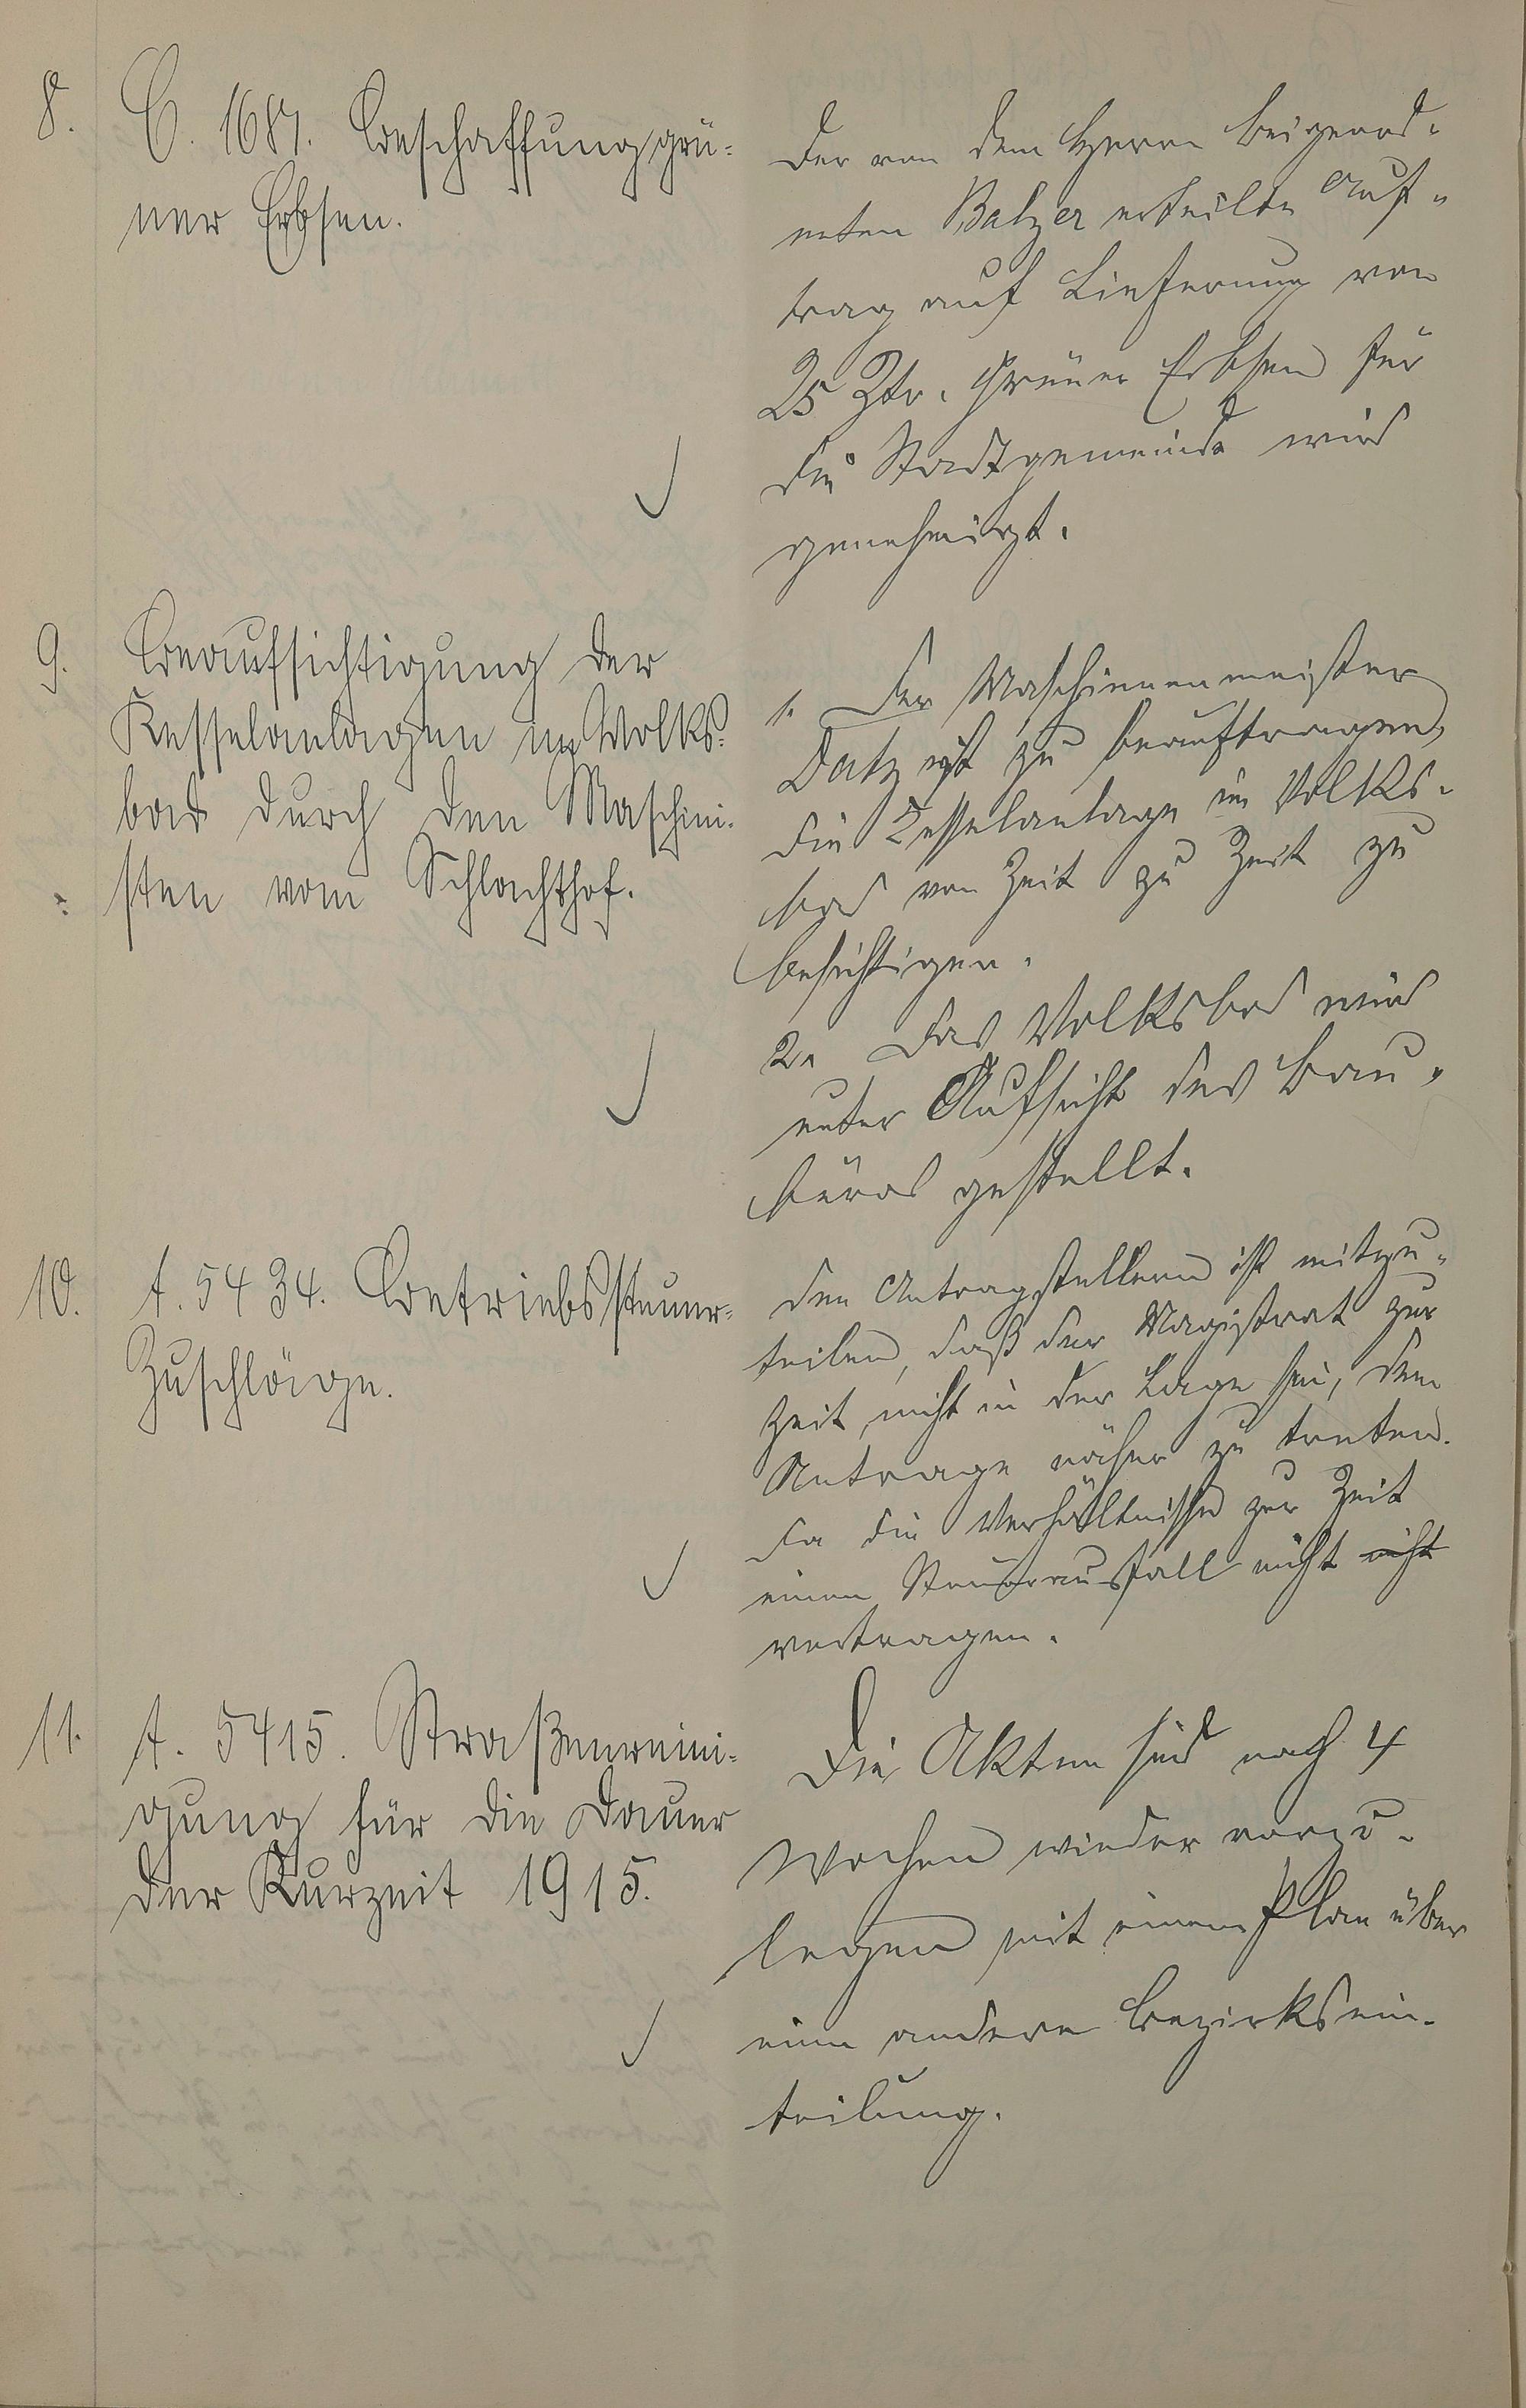 8. C. 1687. Beschaffung grü-
ner Erbsen.
Der von dem Herrn Beigeord-
neten Balzer erteilte Auf-
trag auf Lieferung von
25 Ztr. Grüner Erbsen für
die Stadtgemeinde wird
genehmigt.
9. Beaufsichtigung der
Kesselanlagen im Volks-
bad durch den Maschini-
sten vom Schlachthof.
1. Der Maschinenmeister
Datz ist zu beauftragen,
die Kesselanlage im Volks-
bad von Zeit zu Zeit zu
besichtigen.
2. Das Volksbad wird
unter Aufsicht des Bau-
büros gestellt.
10. A. 5434. Betriebssteuer-
Zuschläge.
Den Antragstellern ist mitzu-
teilen, daß der Magistrat zur
Zeit nicht in der Lage sei, dem
Antrage näher zu treten.
Da die Verhältnisse zur Zeit
einen Steuerausfall nicht nicht
vertragen.
11. A. 5415. Straßenreini-
gung für die Dauer
der Kurzeit 1915.
Die Akten sind nach 4
Wochen wieder vorzu-
legen mit einem Plan über
eine andere Bezirksein-
teilung.